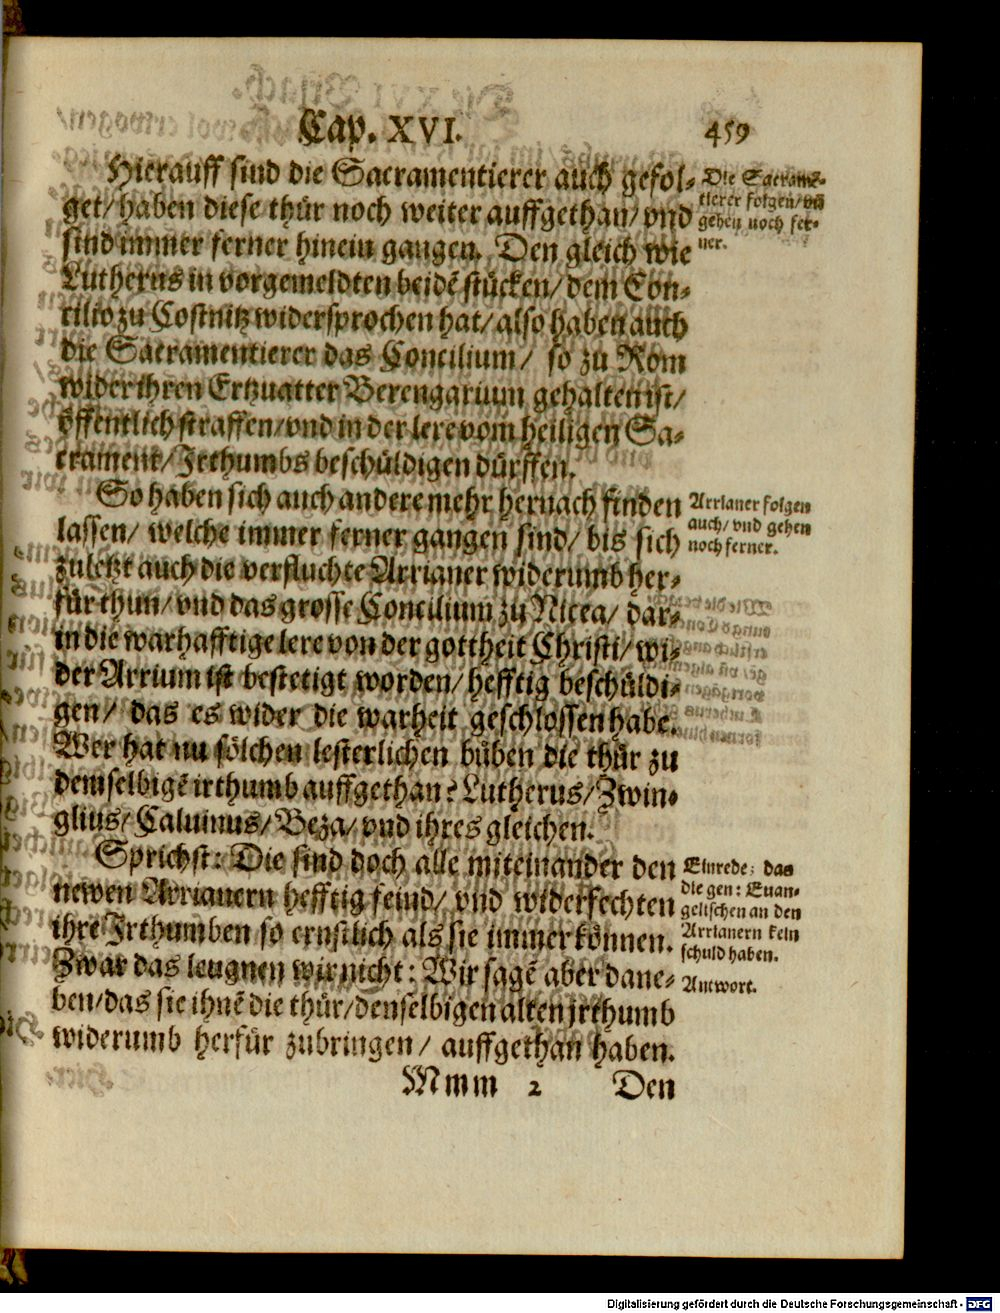 Cap. XVI. 459
Hierauff sind die Sacramentierer auch gefol⸗
get/ haben diese thür noch weiter auffgethan/ vnd
sind immer ferner hinein gangen. Den gleich wie
Lutherus in vorgemeldten beidẽ stücken/ dem Con⸗
cilio zu Costnitz widersprochen hat/ also haben auch
die Sacramentierer das Concilium/ so zu Rom
wider ihren Ertzuatter Berengarium gehalten ist/
öffentlich straffen/ vnd in der lere vom heiligen Sa⸗
crament/ Irthumbs beschüldigen dürffen.
Die Sacramẽ⸗
tierer folgen/ vñ
gehen noch fer⸗
ner.
So haben sich auch andere mehr hernach finden
lassen/ welche immer ferner gangen sind/ bis sich
zuletzt auch die verfluchte Arrianer widerumb her⸗
für thun/ vnd das grosse Concilium zu Nicea/ dar⸗
in die warhafftige lere von der gottheit Christi/ wi⸗
der Arrium ist bestetigt worden/ hefftig beschüldi⸗
gen/ das es wider die warheit geschlossen habe.
Wer hat nu sölchen lesterlichen büben die thür zu
demselbigẽ irthumb auffgethan? Lutherus/ Zwin⸗
glius/ Caluinus/ Beza/ vnd ihres gleichen.
Arrianer folgen
auch/ vnd gehen
noch ferner.
Sprichst: Die sind doch alle miteinander den
newen Arrianern hefftig feind/ vnd widerfechten
ihre Irthumben so ernstlich als sie immer können.
Zwar das leugnen wir nicht: Wir sagẽ aber dane⸗
ben/ das sie ihnẽ die thür/ denselbigen alten jrthumb
widerumb herfür zubringen/ auffgethan haben.
Einrede: das
die gen: Euan⸗
gelischen an den
Arrianern kein
schuld haben.
Antwort.
Mmm 2 Den
Digitalisierung gefördert durch die Deutsche Forschungsgemeinschaft - DFG